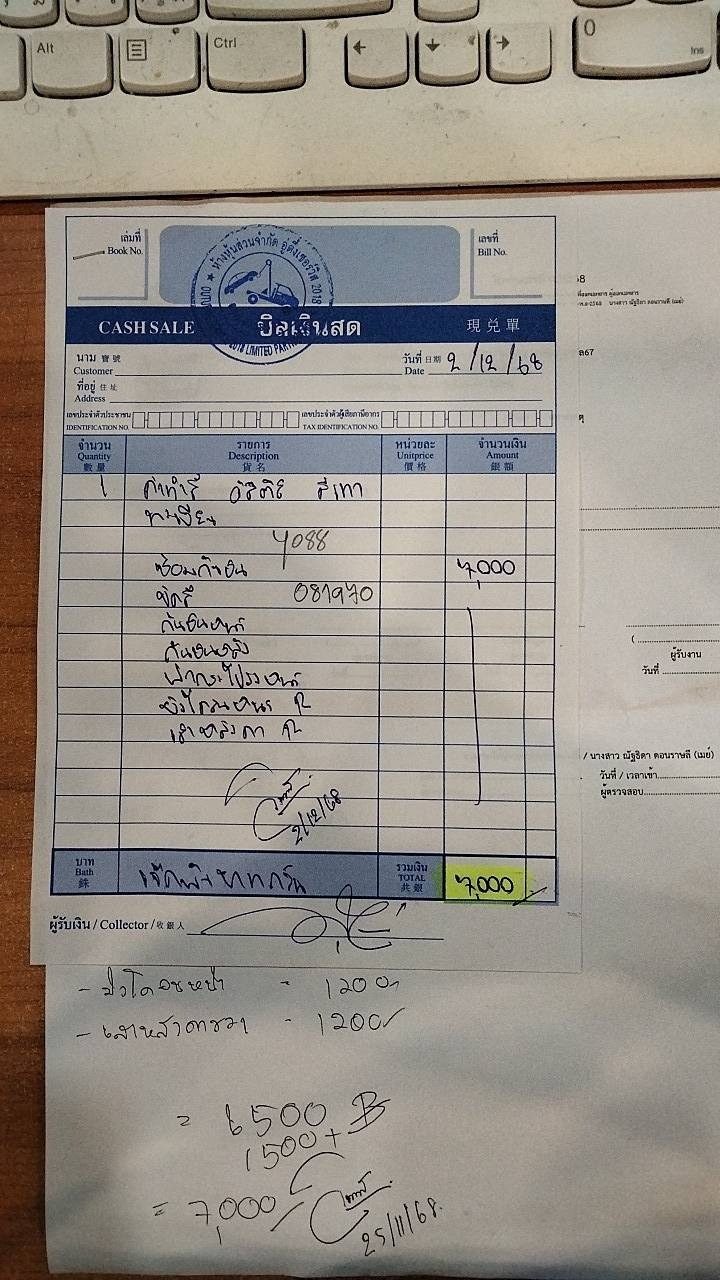 Alt
Ctrl
0
Ins
เล่มที่
Book No.
เลขที่
Bill No.
ห้างหุ้นส่วนจำกัด อู่ดี๋เซอร์วิส 2018
2018 LIMITED PART
CASH SALE บิลเงินสด 現兌單
นาม 寶號
Customer
วันที่ 日期
Date 2/12/68
ที่อยู่ 住址
Address
เลขประจำตัวประชาชน
IDENTIFICATION NO.
เลขประจำตัวผู้เสียภาษีอากร
TAX IDENTIFICATION NO.
จำนวน รายการ หน่วยละ จำนวนเงิน
Quantity Description Unitprice Amount
數量 貨名 價格 銀額
1 ค่าทำสี สีเทา
ทะเบียน
4088
ซ่อมกันชน 7,000
ขัดสี 081970
กันชนหน้า
กันชนหลัง
ฝากระโปรงหน้า
บังโคลนหน้า
เสาหลังคา
2/12/68
บาท
Bath
銖
เจ็ดพันบาทถ้วน
รวมเงิน
TOTAL
共銀
7,000
ผู้รับเงิน / Collector / 收銀人
- บังโคลนหน้า - 1200
- เสาหลังคาขวา - 1200
= 6500 B
1500+
= 7,000
25/11/68
ผู้รับงาน
วันที่
/ นางสาว ณัฐธิดา ดอนราษลี (เมย์)
วันที่ / เวลาเข้า
ผู้ตรวจสอบ